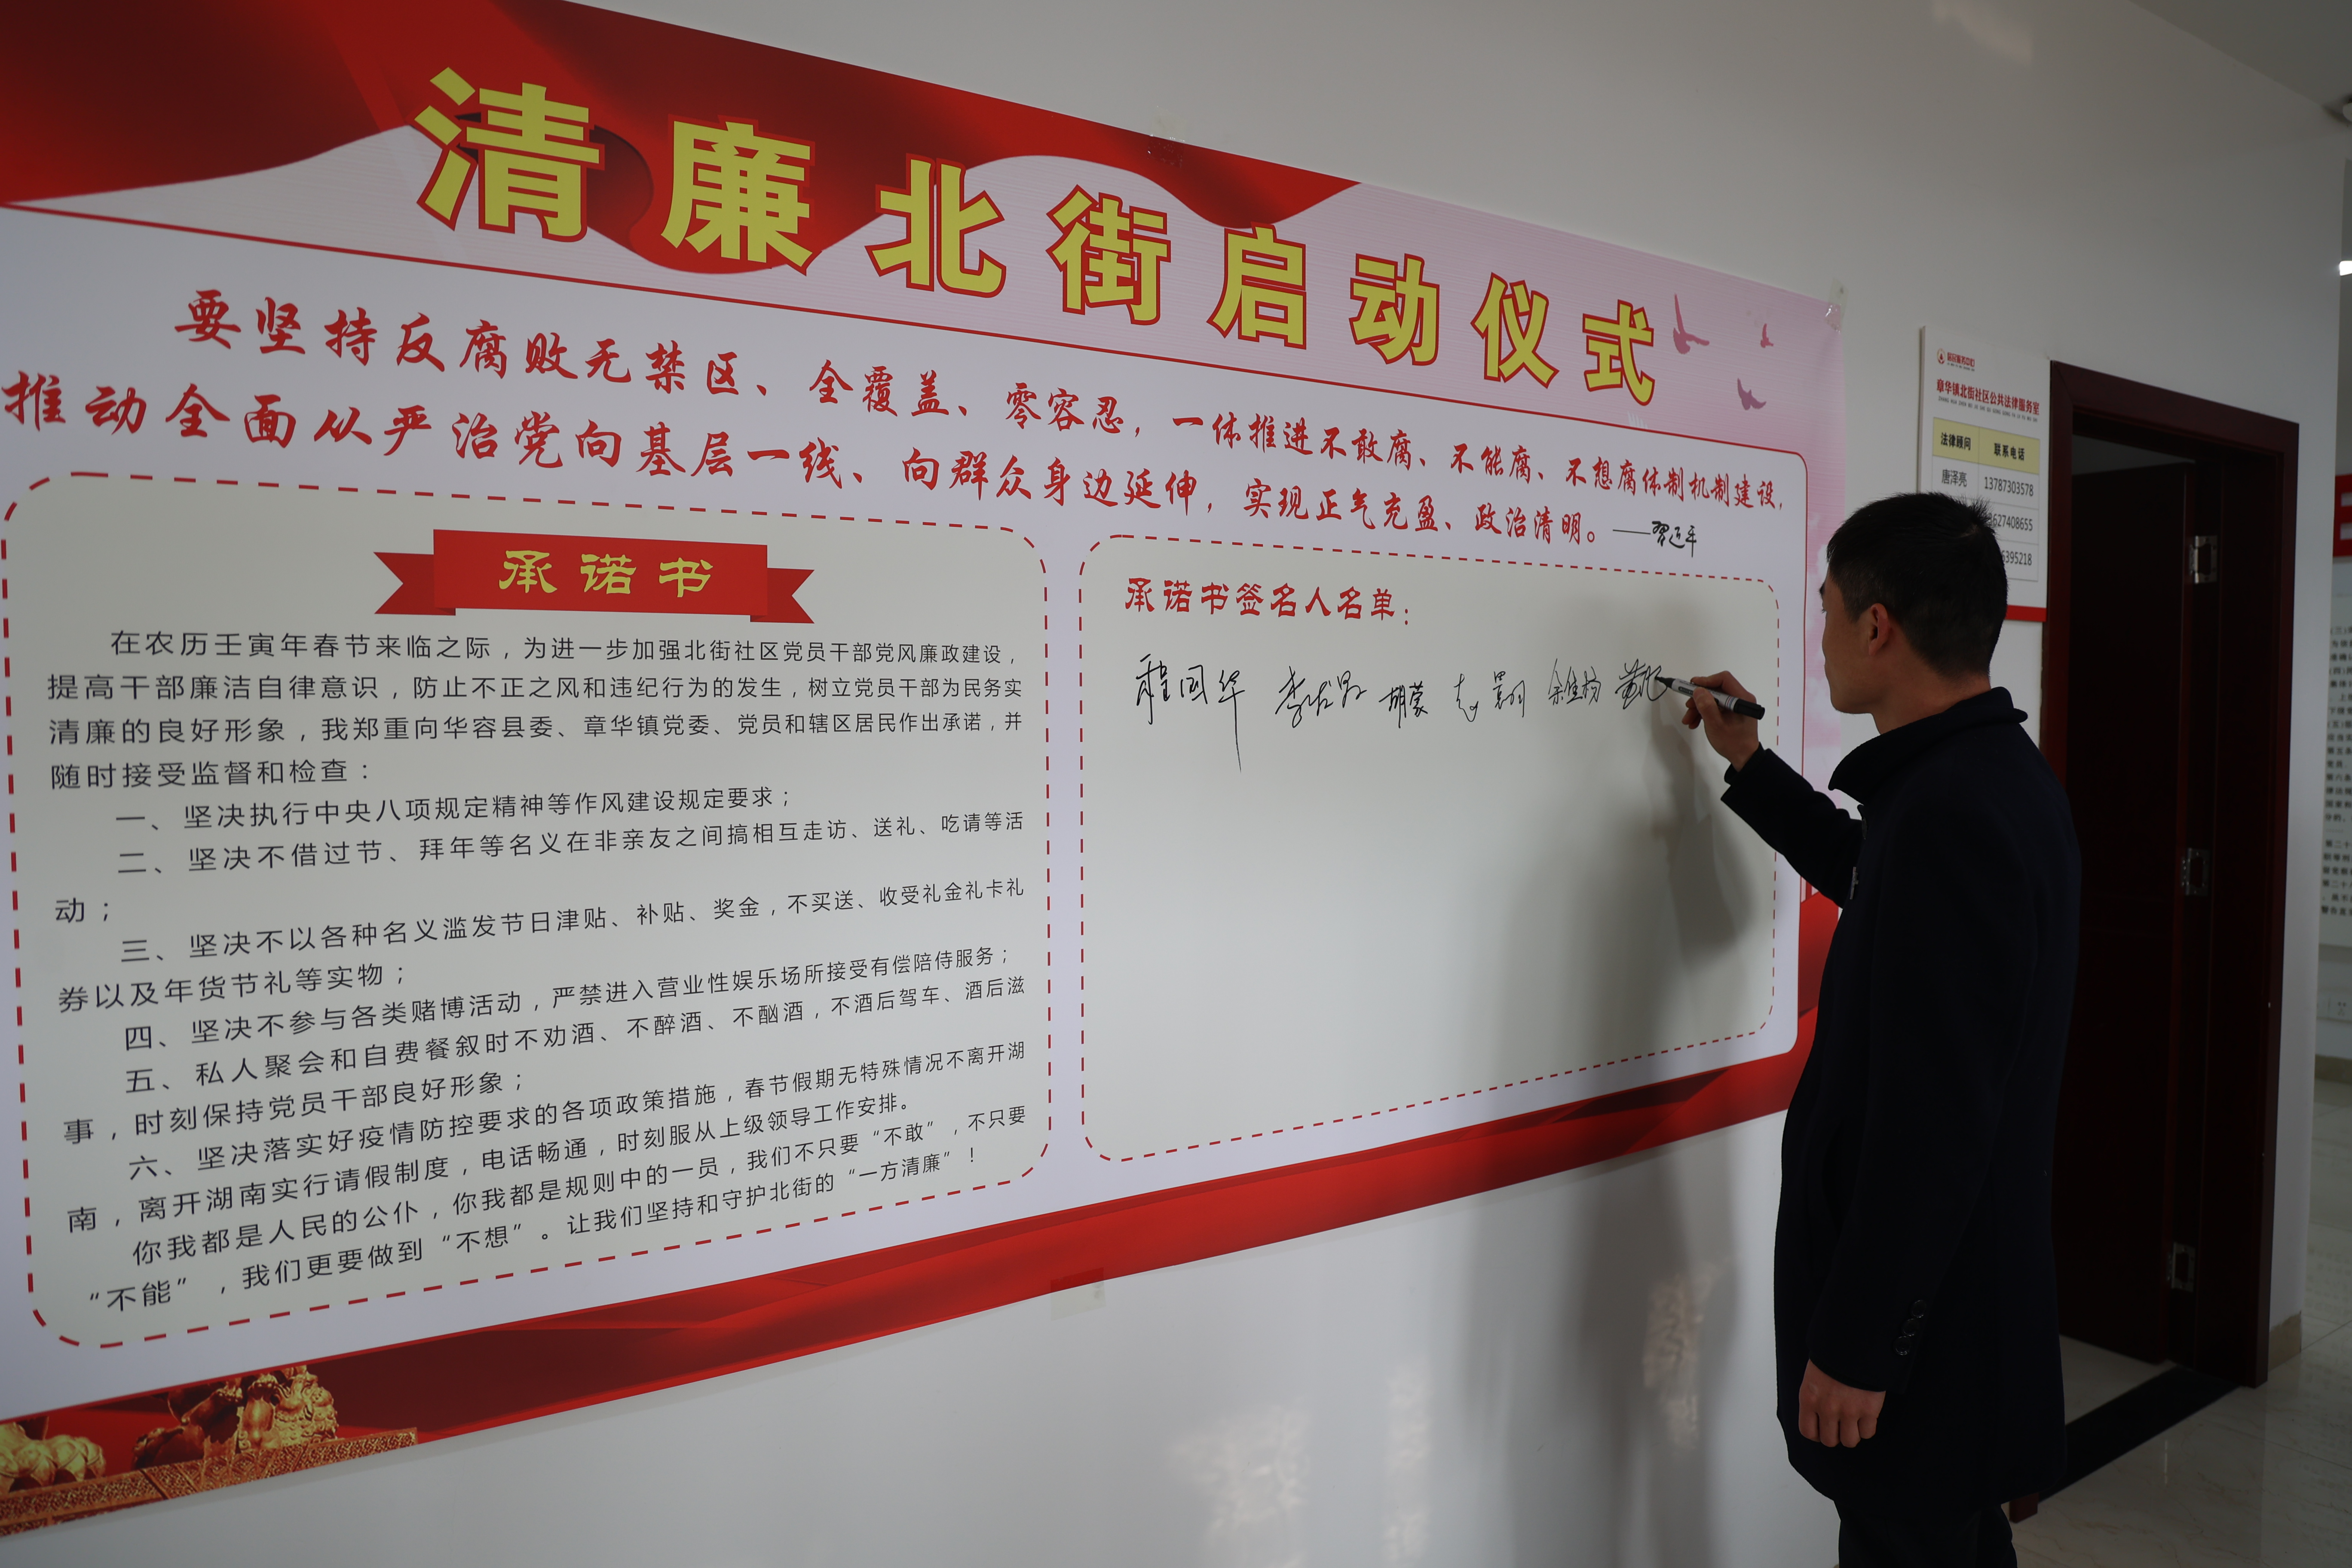 清廉北街启动仪式
要坚持反腐败无禁区、全覆盖、零容忍，一体推进不敢腐、不能腐、不想腐体制机制建设，
推动全面从严治党向基层一线、向群众身边延伸，实现正气充盈、政治清明。——习近平
承诺书
在农历壬寅年春节来临之际，为进一步加强北街社区党员干部党风廉政建设，
提高干部廉洁自律意识，防止不正之风和违纪行为的发生，树立党员干部为民务实
清廉的良好形象，我郑重向华容县委、章华镇党委、党员和辖区居民作出承诺，并
随时接受监督和检查：
一、坚决执行中央八项规定精神等作风建设规定要求；
二、坚决不借过节、拜年等名义在非亲友之间搞相互走访、送礼、吃请等活
动；
三、坚决不以各种名义滥发节日津贴、补贴、奖金，不买送、收受礼金礼卡礼
券以及年货节礼等实物；
四、坚决不参与各类赌博活动，严禁进入营业性娱乐场所接受有偿陪侍服务；
五、私人聚会和自费餐叙时不劝酒、不醉酒、不酗酒，不酒后驾车、酒后滋
事，时刻保持党员干部良好形象；
六、坚决落实好疫情防控要求的各项政策措施，春节假期无特殊情况不离开湖
南，离开湖南实行请假制度，电话畅通，时刻服从上级领导工作安排。
你我都是人民的公仆，你我都是规则中的一员，我们不只要“不敢”，不只要
“不能”，我们更要做到“不想”。让我们坚持和守护北街的“一方清廉”！
承诺书签名人名单：
程国华 胡蒙
章华镇北街社区公共法律服务室
法律顾问 联系电话
唐泽亮 13787303578
627408655
395218